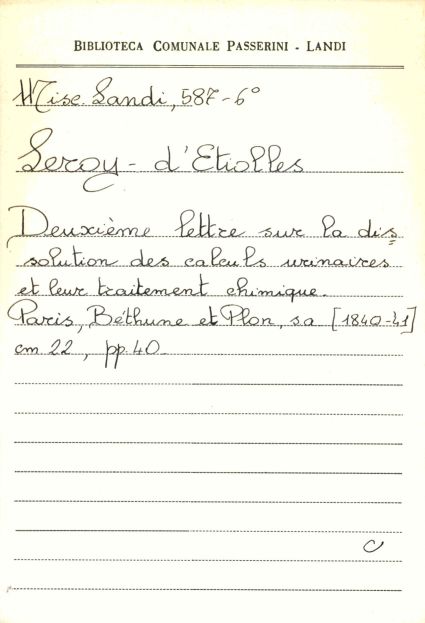 BIBLIOTECA COMUNALE PASSERINI - LANDI
Misc. Landi, 587-6°
Leroy - d'Etiolles
Deuxième lettre sur la dis=
solution des calculs urinaires
et leur traitement chimique.
Paris, Béthune et Plon, s.a. [1840-41]
cm 22, pp. 40
C